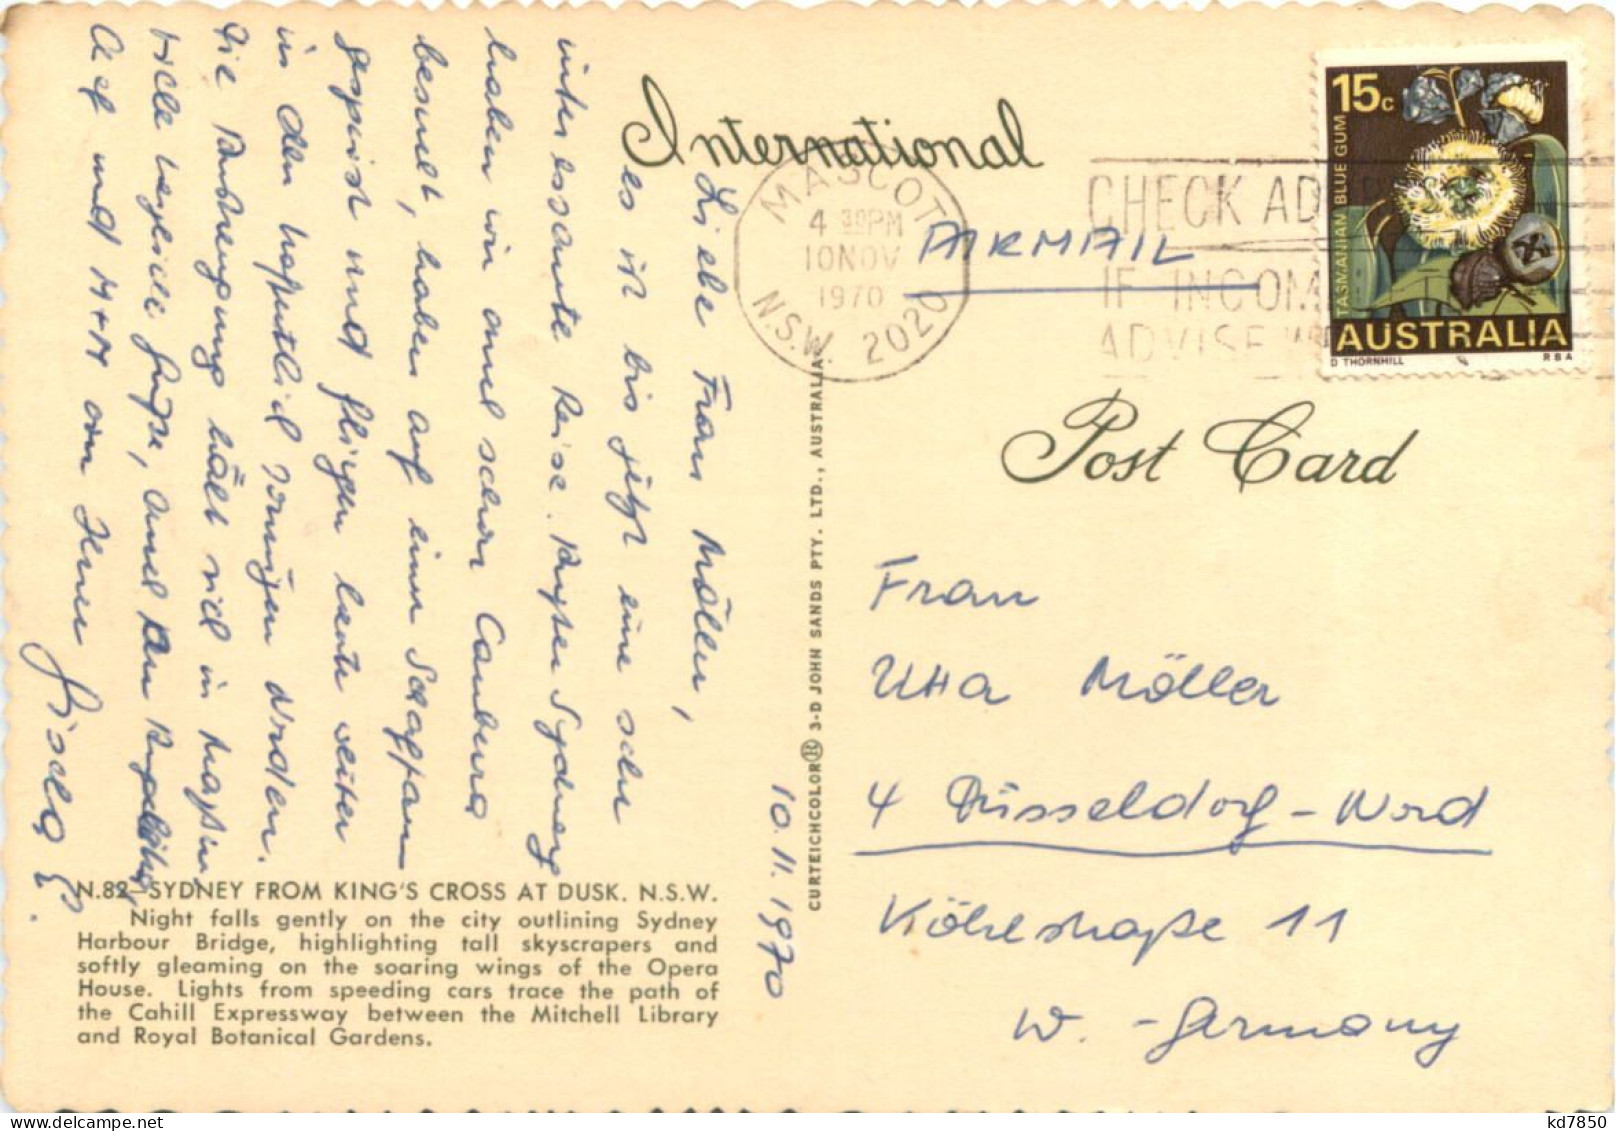 International
MASCOT
4 30PM
10 NOV
1970
N.S.W. 2020
CHECK AD
IF INCOM
ADVISE
AIRMAIL
15c
TASMANIAN BLUE GUM
AUSTRALIA
D THORNHILL
RBA
Post Card
Frau
Utta Möller
4 Düsseldorf-Nord
Köhlstraße 11
W.-Germany
CURTEICHCOLOR® 3-D JOHN SANDS PTY. LTD., AUSTRALIA
10.11.1970
Liebe Frau Möller,
es ist bis jetzt eine sehr
interessante Reise. Außer Sydney
haben wir auch schon Canberra
besucht, haben auf einer Schaffarm
gespeist und fliegen heute weiter
in den hoffentlich sonnigen Norden.
Die Anstrengung hält sich in Maßen.
Viele herzliche Grüße, auch an
und von Ihrer
Gisela E.
N.82 SYDNEY FROM KING'S CROSS AT DUSK. N.S.W.
Night falls gently on the city outlining Sydney
Harbour Bridge, highlighting tall skyscrapers and
softly gleaming on the soaring wings of the Opera
House. Lights from speeding cars trace the path of
the Cahill Expressway between the Mitchell Library
and Royal Botanical Gardens.
kd7850